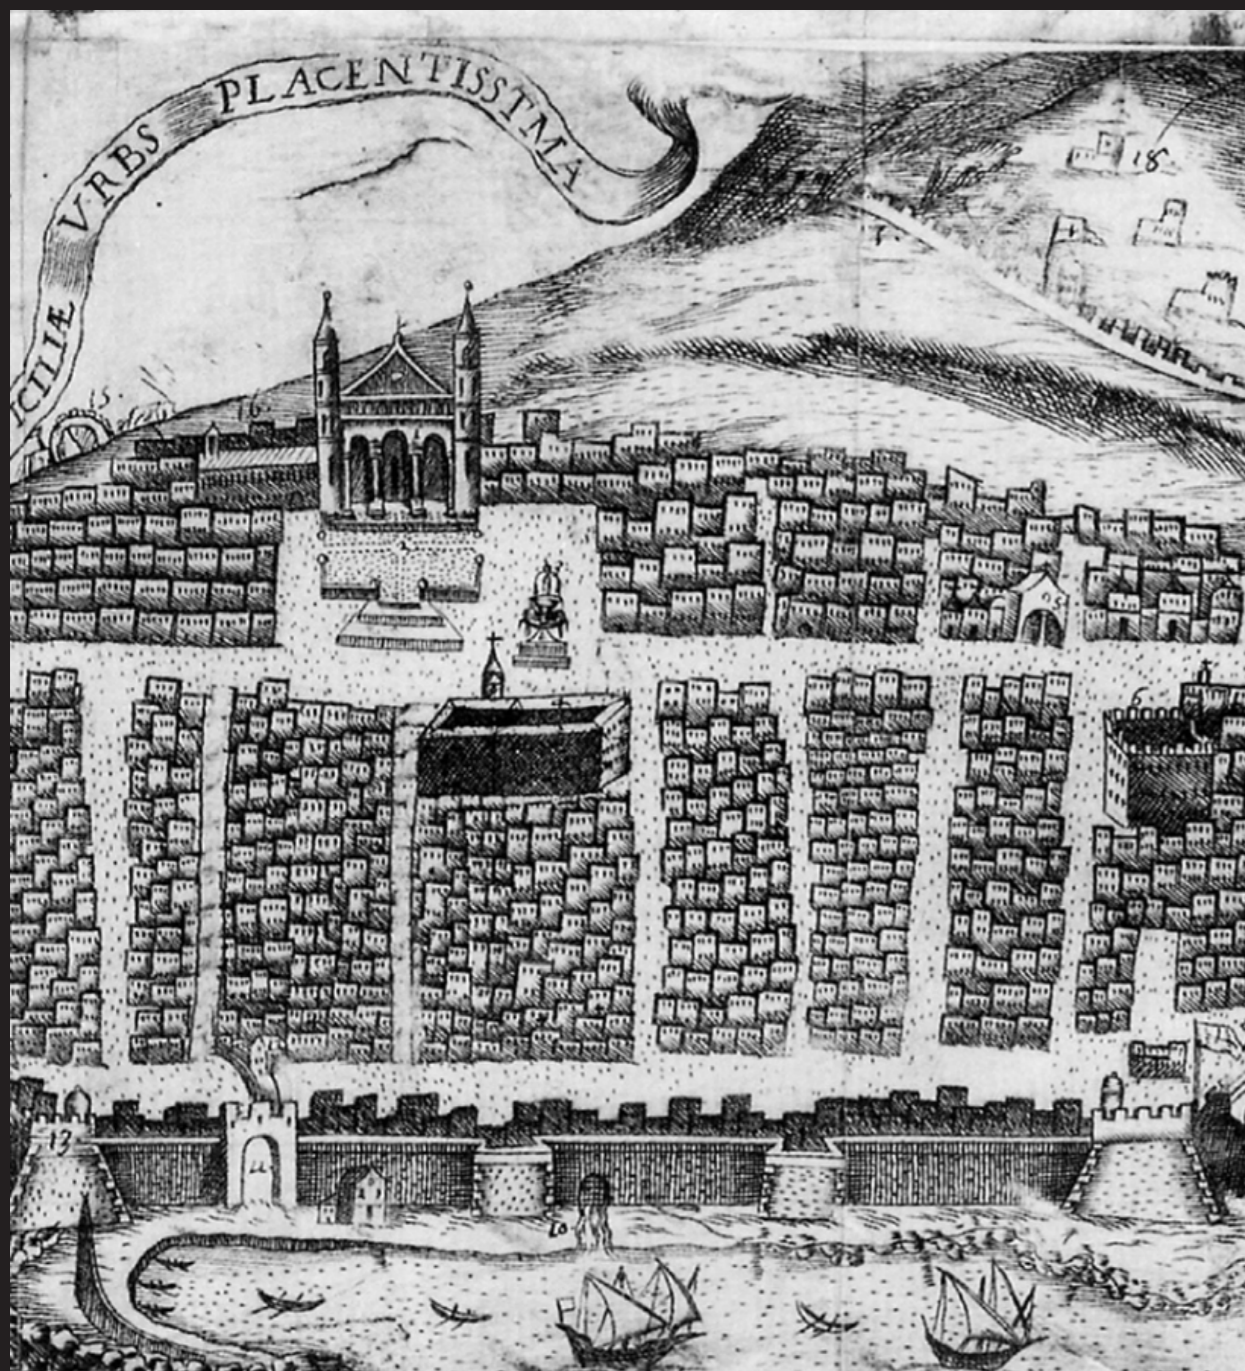 ICILIÆ VRBS PLACENTISSIMA
18
15
16
5
6
13
11
10